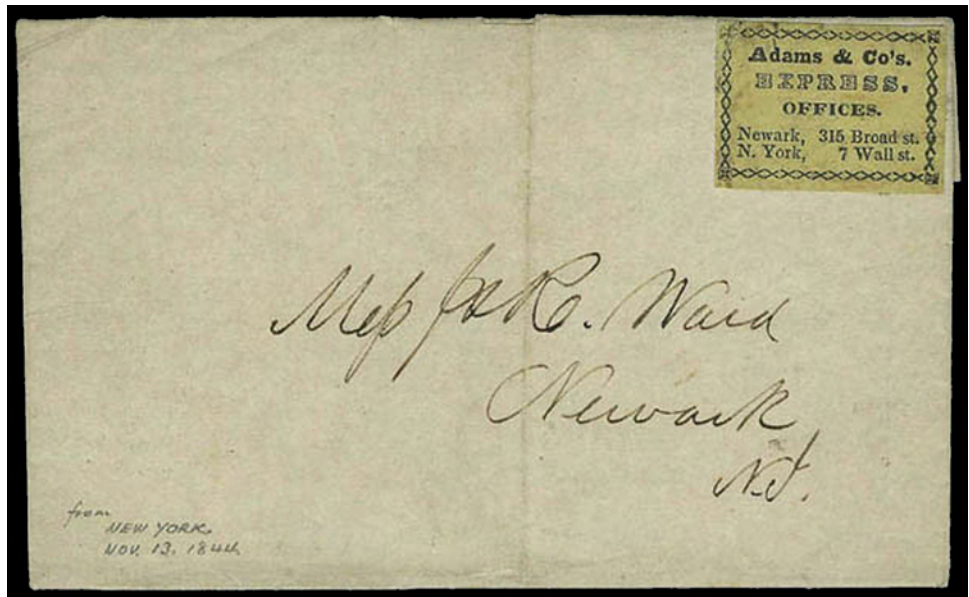 Adams & Co's.
EXPRESS,
OFFICES.
Newark, 315 Broad st.
N. York, 7 Wall st.
Mess J & R. Ward
Newark
N.J.
from
NEW YORK
NOV. 13. 1844